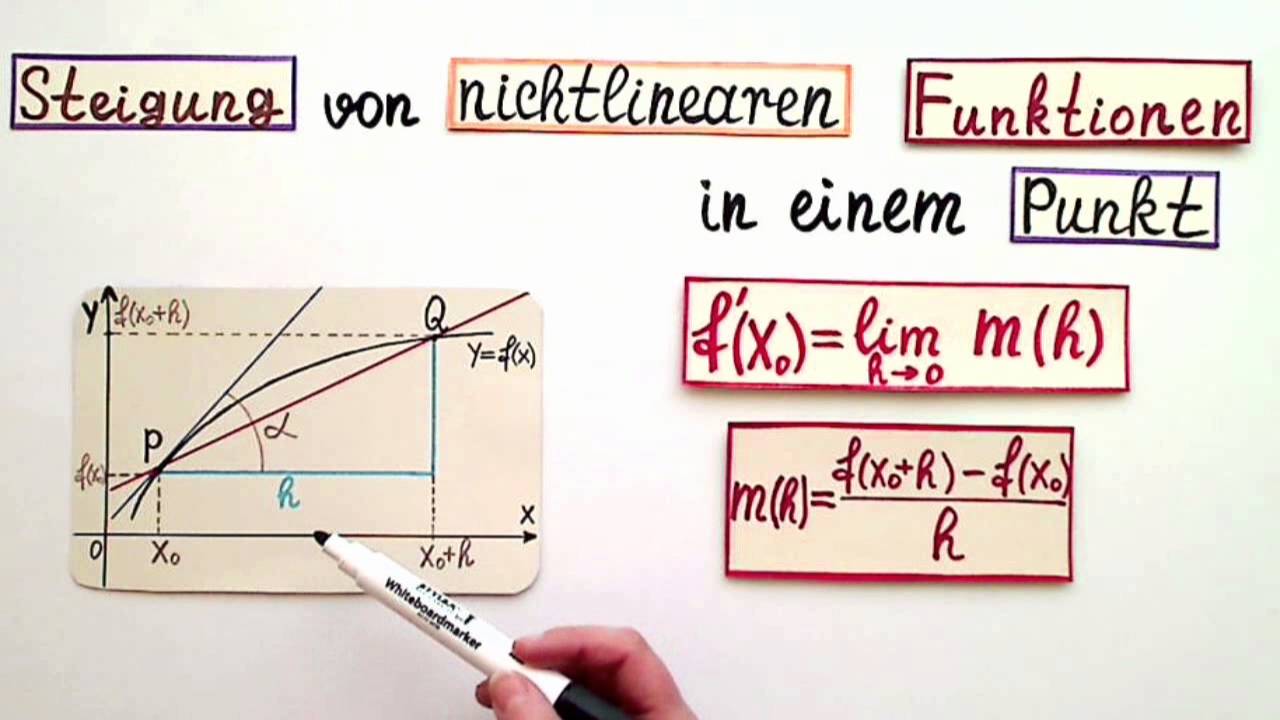 Steigung von nichtlinearen Funktionen
in einem Punkt
y f(x₀+h)
Q
y=f(x)
P
α
f(x₀)
h
x
0 x₀ x₀+h
f'(x₀)=lim m(h)
h→0
m(h)=
f(x₀+h)-f(x₀)
h
Whiteboardmarker